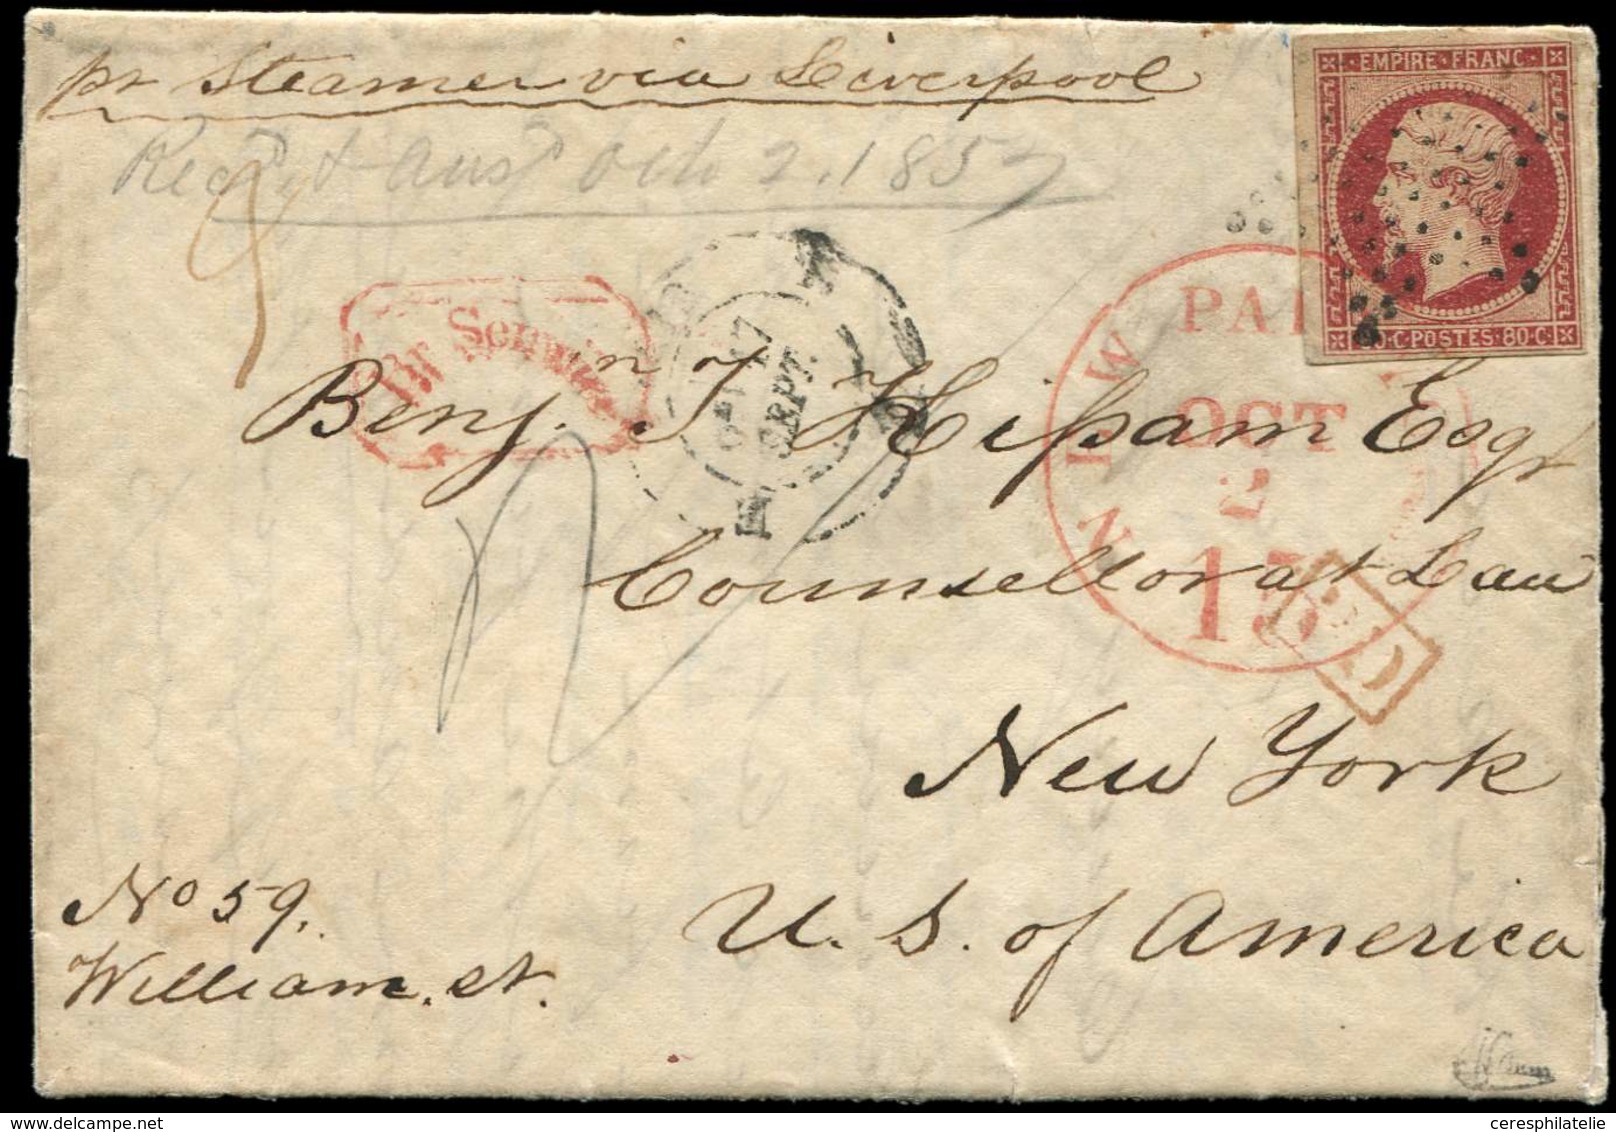 pr Steamer via Liverpool
Recd & ansd Oct 2. 1857
EMPIRE FRANC
80 C POSTES 80 C
Br Service
17
SEPT.
NEW
PAI
OCT
2
15
PD
Benjn T Kissam Esqr
Counsellor at Law
New York
U. S. of America
No 59.
William. st.
ceresphilatelie